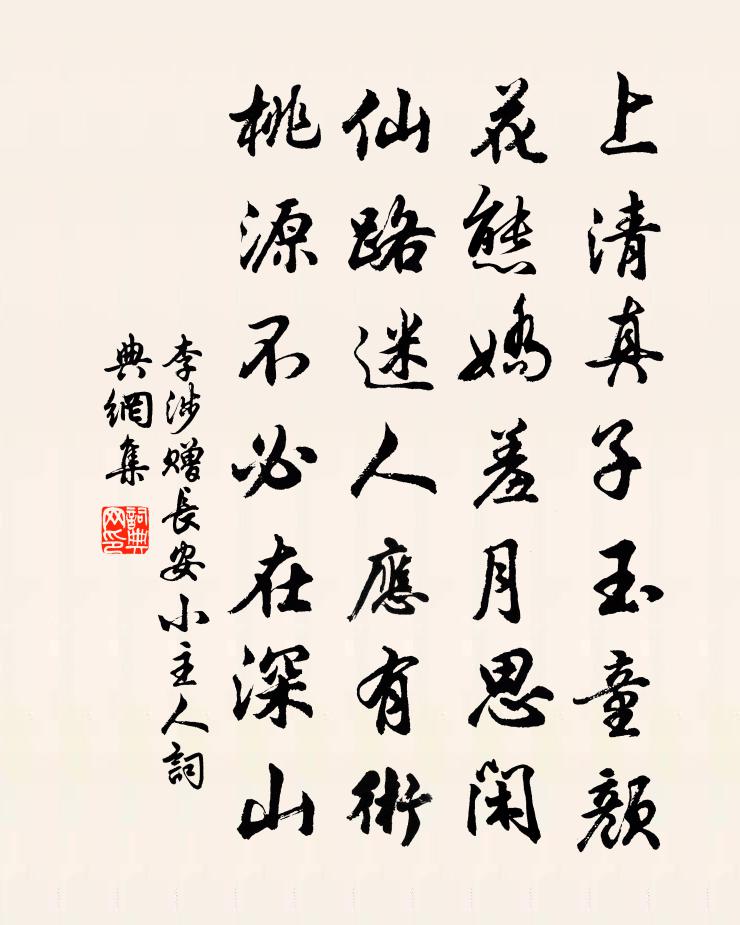 上清真子玉童颜
花態嬌羞月思闲
仙路迷人應有術
桃源不必在深山
李涉赠長安小主人詞
典網集
詞典网印